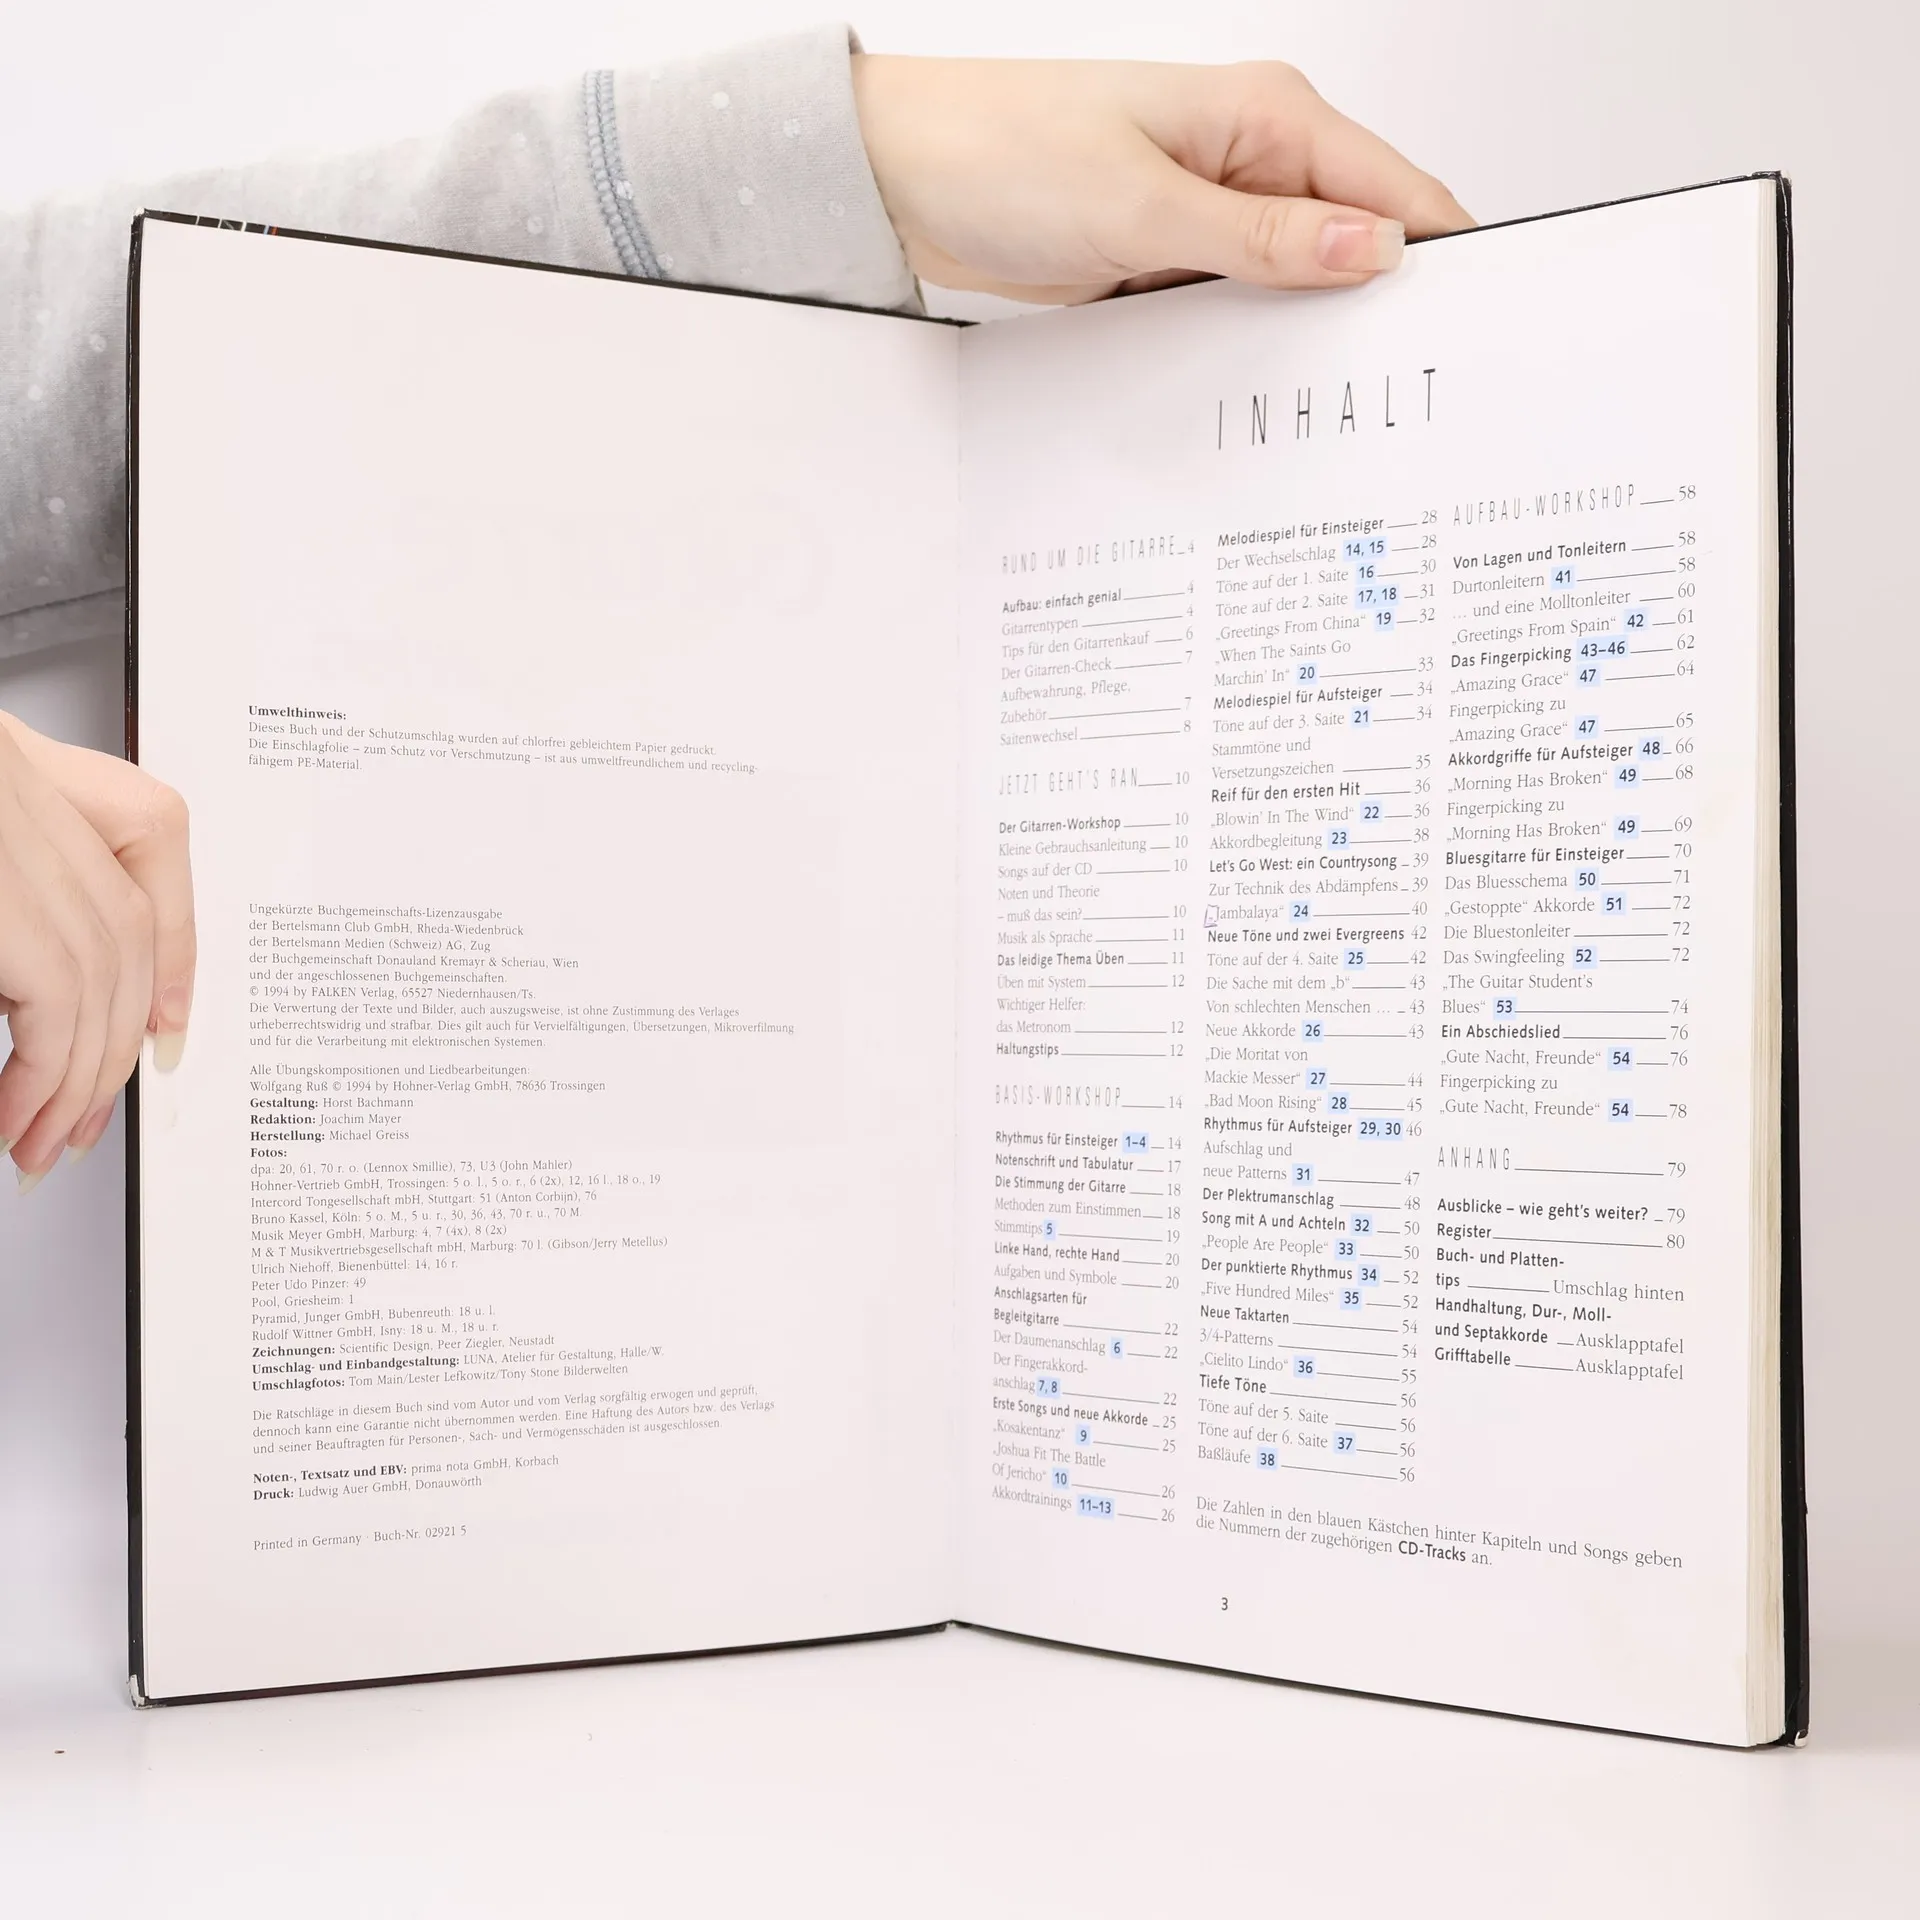 Umwelthinweis:
Dieses Buch und der Schutzumschlag wurden auf chlorfrei gebleichtem Papier gedruckt.
Die Einschlagfolie – zum Schutz vor Verschmutzung – ist aus umweltfreundlichem und recycling-
fähigem PE-Material.
Ungekürzte Buchgemeinschafts-Lizenzausgabe
der Bertelsmann Club GmbH, Rheda-Wiedenbrück
der Bertelsmann Medien (Schweiz) AG, Zug
der Buchgemeinschaft Donauland Kremayr & Scheriau, Wien
und der angeschlossenen Buchgemeinschaften.
© 1994 by FALKEN Verlag, 65527 Niedernhausen/Ts.
Die Verwertung der Texte und Bilder, auch auszugsweise, ist ohne Zustimmung des Verlages
urheberrechtswidrig und strafbar. Dies gilt auch für Vervielfältigungen, Übersetzungen, Mikroverfilmung
und für die Verarbeitung mit elektronischen Systemen.
Alle Übungskompositionen und Liedbearbeitungen:
Wolfgang Ruß © 1994 by Hohner-Verlag GmbH, 78636 Trossingen
Gestaltung: Horst Bachmann
Redaktion: Joachim Mayer
Herstellung: Michael Greiss
Fotos:
dpa: 20, 61, 70 r. o. (Lennox Smillie), 73, U3 (John Mahler)
Hohner-Vertrieb GmbH, Trossingen: 5 o. l., 5 o. r., 6 (2x), 12, 16 l., 18 o., 19
Intercord Tongesellschaft mbH, Stuttgart: 51 (Anton Corbijn), 76
Bruno Kassel, Köln: 5 o. M., 5 u. r., 30, 36, 43, 70 r. u., 70 M.
Musik Meyer GmbH, Marburg: 4, 7 (4x), 8 (2x)
M & T Musikvertriebsgesellschaft mbH, Marburg: 70 l. (Gibson/Jerry Metellus)
Ulrich Niehoff, Bienenbüttel: 14, 16 r.
Peter Udo Pinzer: 49
Pool, Griesheim: 1
Pyramid, Junger GmbH, Bubenreuth: 18 u. l.
Rudolf Wittner GmbH, Isny: 18 u. M., 18 u. r.
Zeichnungen: Scientific Design, Peer Ziegler, Neustadt
Umschlag- und Einbandgestaltung: LUNA, Atelier für Gestaltung, Halle/W.
Umschlagfotos: Tom Main/Lester Lefkowitz/Tony Stone Bilderwelten
Die Ratschläge in diesem Buch sind vom Autor und vom Verlag sorgfältig erwogen und geprüft,
dennoch kann eine Garantie nicht übernommen werden. Eine Haftung des Autors bzw. des Verlags
und seiner Beauftragten für Personen-, Sach- und Vermögensschäden ist ausgeschlossen.
Noten-, Textsatz und EBV: prima nota GmbH, Korbach
Druck: Ludwig Auer GmbH, Donauwörth
Printed in Germany · Buch-Nr. 02921 5
INHALT
RUND UM DIE GITARRE 4
Aufbau: einfach genial 4
Gitarrentypen 4
Tips für den Gitarrenkauf 6
Der Gitarren-Check 7
Aufbewahrung, Pflege,
Zubehör 7
Saitenwechsel 8
JETZT GEHT'S RAN 10
Der Gitarren-Workshop 10
Kleine Gebrauchsanleitung 10
Songs auf der CD 10
Noten und Theorie
– muß das sein? 10
Musik als Sprache 11
Das leidige Thema Üben 11
Üben mit System 12
Wichtiger Helfer:
das Metronom 12
Haltungstips 12
BASIS-WORKSHOP 14
Rhythmus für Einsteiger 1–4 14
Notenschrift und Tabulatur 17
Die Stimmung der Gitarre 18
Methoden zum Einstimmen 18
Stimmtips 5 19
Linke Hand, rechte Hand 20
Aufgaben und Symbole 20
Anschlagsarten für
Begleitgitarre 22
Der Daumenanschlag 6 22
Der Fingerakkord-
anschlag 7, 8 22
Erste Songs und neue Akkorde 25
„Kosakentanz“ 9 25
„Joshua Fit The Battle
Of Jericho“ 10 26
Akkordtrainings 11–13 26
Melodiespiel für Einsteiger 28
Der Wechselschlag 14, 15 28
Töne auf der 1. Saite 16 30
Töne auf der 2. Saite 17, 18 31
„Greetings From China“ 19 32
„When The Saints Go
Marchin' In“ 20 33
Melodiespiel für Aufsteiger 34
Töne auf der 3. Saite 21 34
Stammtöne und
Versetzungszeichen 35
Reif für den ersten Hit 36
„Blowin' In The Wind“ 22 36
Akkordbegleitung 23 38
Let's Go West: ein Countrysong 39
Zur Technik des Abdämpfens 39
„Jambalaya“ 24 40
Neue Töne und zwei Evergreens 42
Töne auf der 4. Saite 25 42
Die Sache mit dem „b“ 43
Von schlechten Menschen ... 43
Neue Akkorde 26 43
„Die Moritat von
Mackie Messer“ 27 44
„Bad Moon Rising“ 28 45
Rhythmus für Aufsteiger 29, 30 46
Aufschlag und
neue Patterns 31 47
Der Plektrumanschlag 48
Song mit A und Achteln 32 50
„People Are People“ 33 50
Der punktierte Rhythmus 34 52
„Five Hundred Miles“ 35 52
Neue Taktarten 54
3/4-Patterns 54
„Cielito Lindo“ 36 55
Tiefe Töne 56
Töne auf der 5. Saite 56
Töne auf der 6. Saite 37 56
Baßläufe 38 56
AUFBAU-WORKSHOP 58
Von Lagen und Tonleitern 58
Durtonleitern 41 58
... und eine Molltonleiter 60
„Greetings From Spain“ 42 61
Das Fingerpicking 43–46 62
„Amazing Grace“ 47 64
Fingerpicking zu
„Amazing Grace“ 47 65
Akkordgriffe für Aufsteiger 48 66
„Morning Has Broken“ 49 68
Fingerpicking zu
„Morning Has Broken“ 49 69
Bluesgitarre für Einsteiger 70
Das Bluesschema 50 71
„Gestoppte“ Akkorde 51 72
Die Bluestonleiter 72
Das Swingfeeling 52 72
„The Guitar Student's
Blues“ 53 74
Ein Abschiedslied 76
„Gute Nacht, Freunde“ 54 76
Fingerpicking zu
„Gute Nacht, Freunde“ 54 78
ANHANG 79
Ausblicke – wie geht's weiter? 79
Register 80
Buch- und Platten-
tips Umschlag hinten
Handhaltung, Dur-, Moll-
und Septakkorde Ausklapptafel
Grifftabelle Ausklapptafel
Die Zahlen in den blauen Kästchen hinter Kapiteln und Songs geben
die Nummern der zugehörigen CD-Tracks an.
3